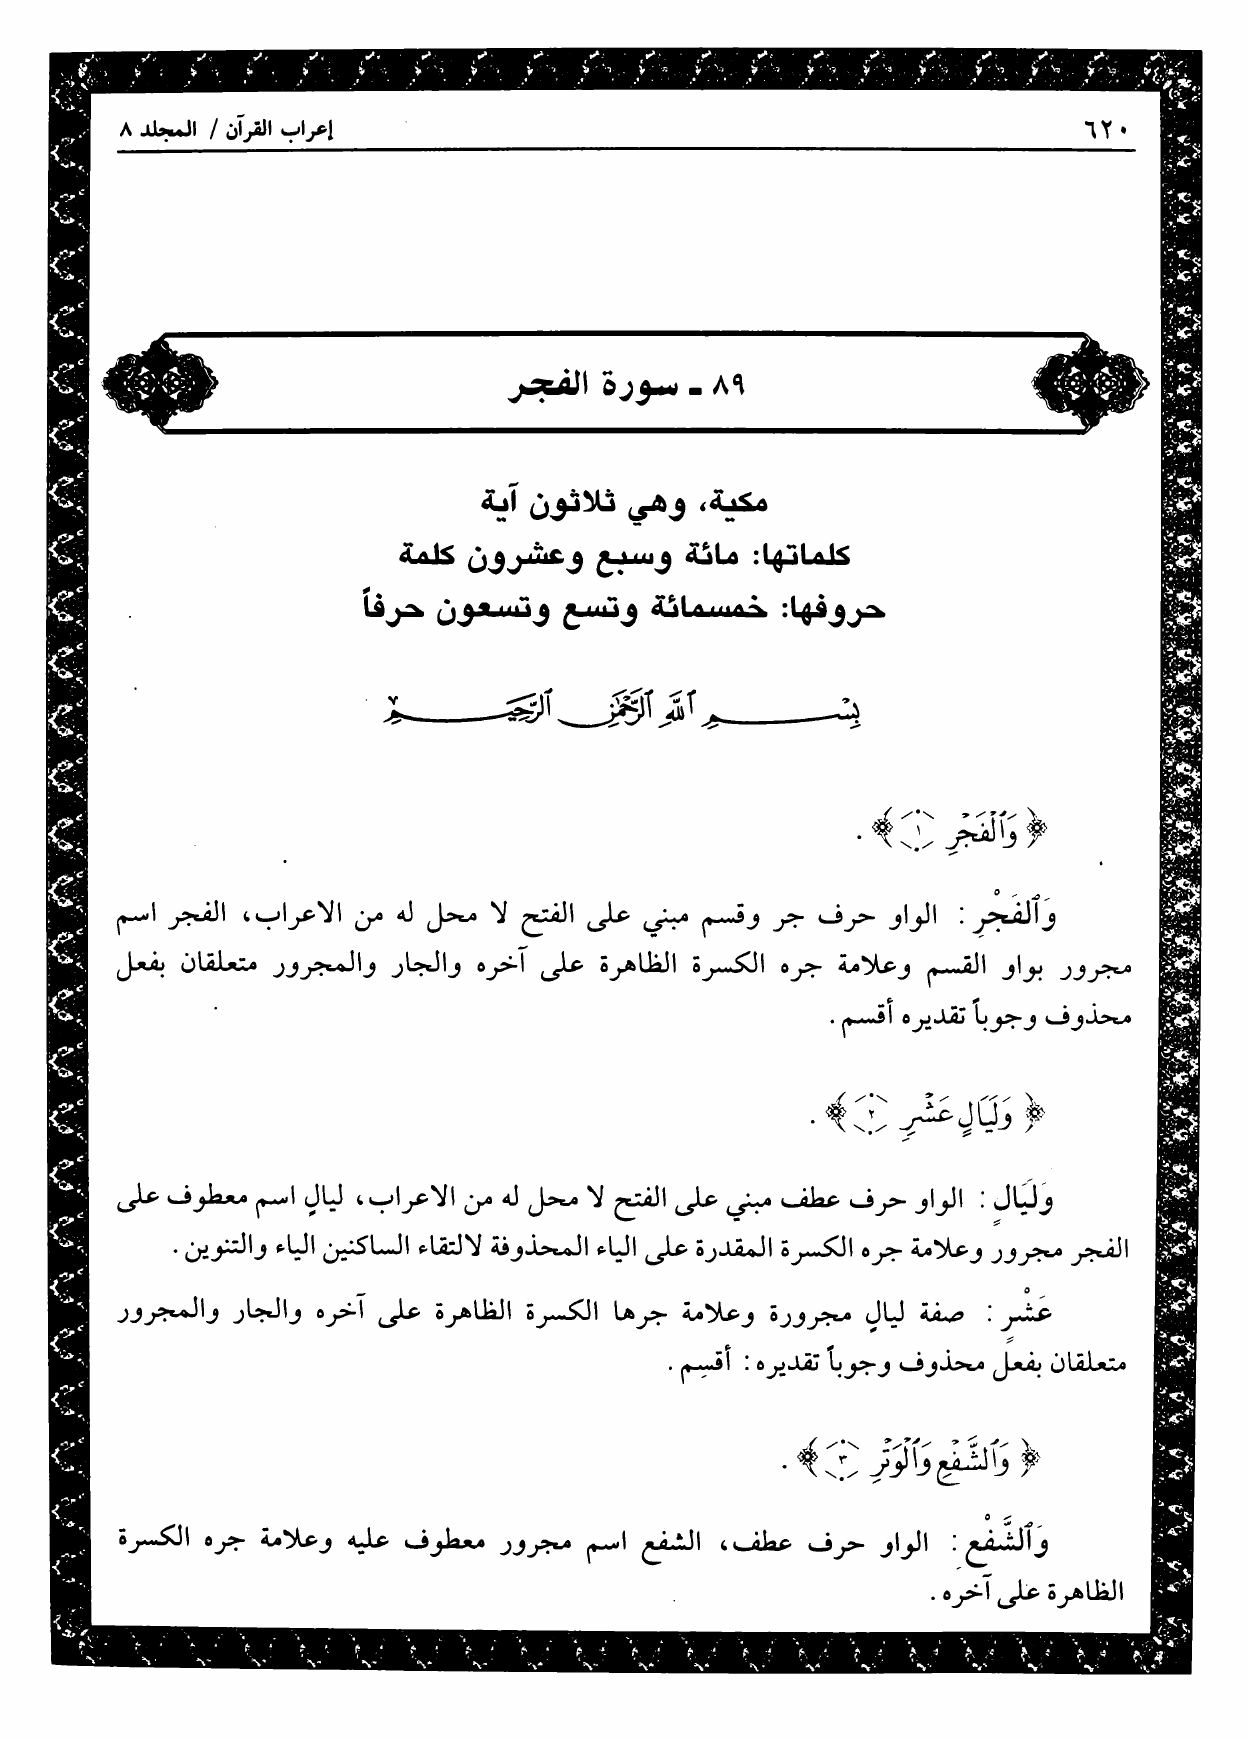 ٦٢٠
إعراب القرآن / المجلد ٨
٨٩ ـ سورة الفجر
مكية، وهي ثلاثون آية
كلماتها: مائة وسبع وعشرون كلمة
حروفها: خمسمائة وتسع وتسعون حرفاً
بِسْمِ ٱللَّهِ ٱلرَّحْمَٰنِ ٱلرَّحِيمِ
﴿ وَٱلْفَجْرِ ١ ﴾ .
وَٱلفَجْرِ : الواو حرف جر وقسم مبني على الفتح لا محل له من الاعراب، الفجر اسم
مجرور بواو القسم وعلامة جره الكسرة الظاهرة على آخره والجار والمجرور متعلقان بفعل
محذوف وجوباً تقديره أقسم .
﴿ وَلَيَالٍ عَشْرٍ ٢ ﴾ .
وَلَيَالٍ : الواو حرف عطف مبني على الفتح لا محل له من الاعراب، ليالٍ اسم معطوف على
الفجر مجرور وعلامة جره الكسرة المقدرة على الياء المحذوفة لالتقاء الساكنين الياء والتنوين .
عَشْرٍ : صفة ليالٍ مجرورة وعلامة جرها الكسرة الظاهرة على آخره والجار والمجرور
متعلقان بفعل محذوف وجوباً تقديره : أقسِم .
﴿ وَٱلشَّفْعِ وَٱلْوَتْرِ ٣ ﴾ .
وَٱلشَّفْعِ : الواو حرف عطف، الشفع اسم مجرور معطوف عليه وعلامة جره الكسرة
الظاهرة على آخره .